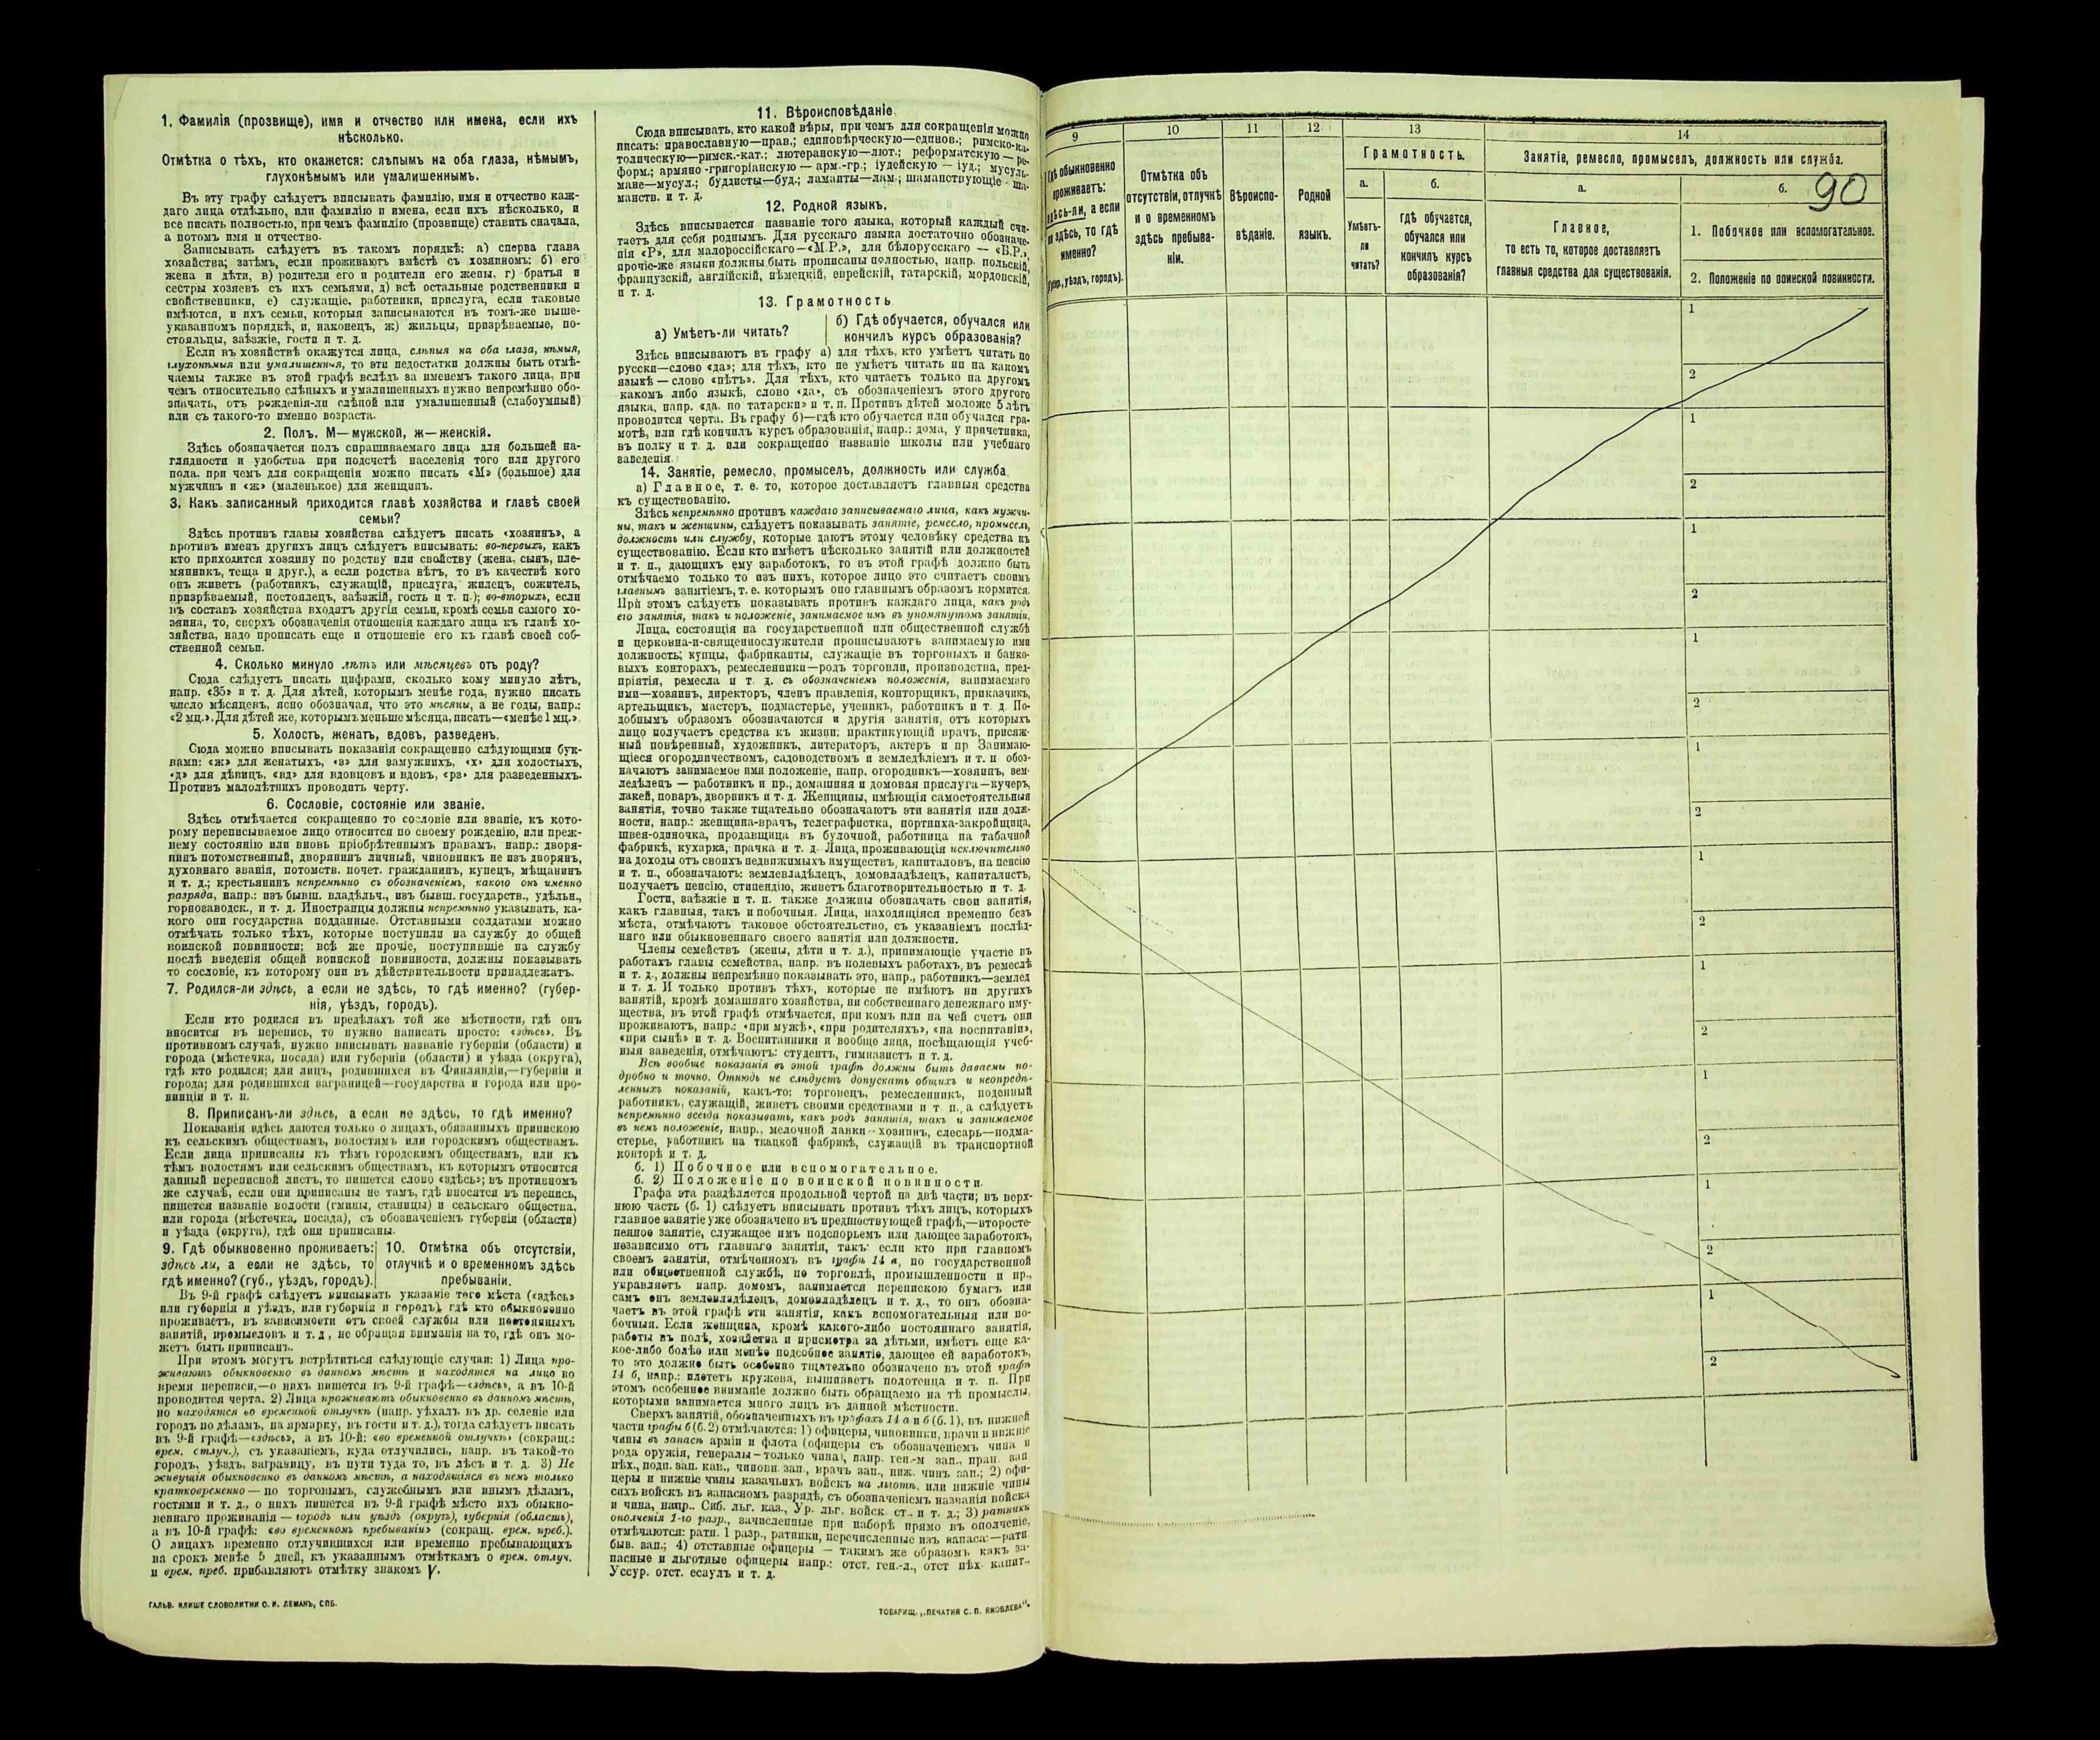 1. Фамилія (прозвище), имя и отчество или имена, если ихъ
нѣсколько.
Отмѣтка о тѣхъ, кто окажется: слѣпымъ на оба глаза, нѣмымъ,
глухонѣмымъ или умалишеннымъ.
Въ эту графу слѣдуетъ вписывать фамилію, имя и отчество каж-
даго лица отдѣльно, или фамилію и имена, если ихъ нѣсколько, и
все писать полностью, при чемъ фамилію (прозвище) ставить сначала,
а потомъ имя и отчество.
Записывать слѣдуетъ въ такомъ порядкѣ: а) сперва глава
хозяйства; затѣмъ, если проживаютъ вмѣстѣ съ хозяиномъ: б) его
жена и дѣти, в) родители его и родители его жены, г) братья и
сестры хозяевъ съ ихъ семьями, д) всѣ остальные родственники и
свойственники, е) служащіе, работники, прислуга, если таковые
имѣются, и ихъ семьи, которыя записываются въ томъ-же выше-
указанномъ порядкѣ, и, наконецъ, ж) жильцы, призрѣваемые, по-
стояльцы, заѣзжіе, гости и т. д.
Если въ хозяйствѣ окажутся лица, слѣпыя на оба глаза, нѣмыя,
глухонѣмыя или умалишенныя, то эти недостатки должны быть отмѣ-
чаемы также въ этой графѣ вслѣдъ за именемъ такого лица, при
чемъ относительно слѣпыхъ и умалишенныхъ нужно непремѣнно обо-
значать, отъ рожденія-ли слѣпой или умалишенный (слабоумный)
или съ такого-то именно возраста.
2. Полъ. М—мужской, ж—женскій.
Здѣсь обозначается полъ спрашиваемаго лица для большей на-
глядности и удобства при подсчетѣ населенія того или другого
пола, при чемъ для сокращенія можно писать «М» (большое) для
мужчинъ и «ж» (маленькое) для женщинъ.
3. Какъ записанный приходится главѣ хозяйства и главѣ своей
семьи?
Здѣсь противъ главы хозяйства слѣдуетъ писать «хозяинъ», а
противъ именъ другихъ лицъ слѣдуетъ вписывать: во-первыхъ, какъ
кто приходится хозяину по родству или свойству (жена, сынъ, пле-
мянникъ, теща и друг.), а если родства нѣтъ, то въ качествѣ кого
онъ живетъ (работникъ, служащій, прислуга, жилецъ, сожитель,
призрѣваемый, постоялецъ, заѣзжій, гость и т. п.); во-вторыхъ, если
въ составъ хозяйства входятъ другія семьи, кромѣ семьи самого хо-
зяина, то, сверхъ обозначенія отношенія каждаго лица къ главѣ хо-
зяйства, надо прописать еще и отношеніе его къ главѣ своей соб-
ственной семьи.
4. Сколько минуло лѣтъ или мѣсяцевъ отъ роду?
Сюда слѣдуетъ писать цифрами, сколько кому минуло лѣтъ,
напр. «35» и т. д. Для дѣтей, которымъ менѣе года, нужно писать
число мѣсяцевъ, ясно обозначая, что это мѣсяцы, а не годы, напр.:
«2 мц.». Для дѣтей же, которымъ меньше мѣсяца, писать—«менѣе 1 мц.».
5. Холостъ, женатъ, вдовъ, разведенъ.
Сюда можно вписывать показанія сокращенно слѣдующими бук-
вами: «ж» для женатыхъ, «з» для замужнихъ, «х» для холостыхъ,
«д» для дѣвицъ, «вд» для вдовцовъ и вдовъ, «рз» для разведенныхъ.
Противъ малолѣтнихъ проводить черту.
6. Сословіе, состояніе или званіе.
Здѣсь отмѣчается сокращенно то сословіе или званіе, къ кото-
рому переписываемое лицо относится по своему рожденію, или преж-
нему состоянію или вновь пріобрѣтеннымъ правамъ, напр.: дворя-
нинъ потомственный, дворянинъ личный, чиновникъ не изъ дворянъ,
духовнаго званія, потомств. почет. гражданинъ, купецъ, мѣщанинъ
и т. д.; крестьянинъ непремѣнно съ обозначеніемъ, какого онъ именно
разряда, напр.: изъ бывш. владѣльч., изъ бывш. государств., удѣльн.,
горнозаводск., и т. д. Иностранцы должны непремѣнно указывать, ка-
кого они государства подданные. Отставными солдатами можно
отмѣчать только тѣхъ, которые поступили на службу до общей
воинской повинности; всѣ же прочіе, поступившіе на службу
послѣ введенія общей воинской повинности, должны показывать
то сословіе, къ которому они въ дѣйствительности принадлежатъ.
7. Родился-ли здѣсь, а если не здѣсь, то гдѣ именно? (губер-
нія, уѣздъ, городъ).
Если кто родился въ предѣлахъ той же мѣстности, гдѣ онъ
вносится въ перепись, то нужно написать просто: «здѣсь». Въ
противномъ случаѣ, нужно вписывать названіе губерніи (области) и
города (мѣстечка, посада) или губерніи (области) и уѣзда (округа),
гдѣ кто родился; для лицъ, родившихся въ Финляндіи,—губерніи и
города; для родившихся заграницей—государства и города или про-
винціи и т. п.
8. Приписанъ-ли здѣсь, а если не здѣсь, то гдѣ именно?
Показанія здѣсь даются только о лицахъ, обязанныхъ припискою
къ сельскимъ обществамъ, волостямъ или городскимъ обществамъ.
Если лица приписаны къ тѣмъ городскимъ обществамъ, или къ
тѣмъ волостямъ или сельскимъ обществамъ, къ которымъ относится
данный переписной листъ, то пишется слово «здѣсь»; въ противномъ
же случаѣ, если они приписаны не тамъ, гдѣ вносятся въ перепись,
пишется названіе волости (гмины, станицы) и сельскаго общества,
или города (мѣстечка, посада), съ обозначеніемъ губерніи (области)
и уѣзда (округа), гдѣ они приписаны.
9. Гдѣ обыкновенно проживаетъ:
здѣсь ли, а если не здѣсь, то
гдѣ именно? (губ., уѣздъ, городъ).
10. Отмѣтка объ отсутствіи,
отлучкѣ и о временномъ здѣсь
пребываніи.
Въ 9-й графѣ слѣдуетъ вписывать указаніе того мѣста («здѣсь»
или губернія и уѣздъ, или губернія и городъ), гдѣ кто обыкновенно
проживаетъ, въ зависимости отъ своей службы или постоянныхъ
занятій, промысловъ и т. д., не обращая вниманія на то, гдѣ онъ мо-
жетъ быть приписанъ.
При этомъ могутъ встрѣтиться слѣдующіе случаи: 1) Лица про-
живаютъ обыкновенно въ данномъ мѣстѣ и находятся на лицо во
время переписи,—о нихъ пишется въ 9-й графѣ—«здѣсь», а въ 10-й
проводится черта. 2) Лица проживаютъ обыкновенно въ данномъ мѣстѣ,
но находятся во временной отлучкѣ (напр. уѣхалъ въ др. селеніе или
городъ по дѣламъ, на ярмарку, въ гости и т. д.), тогда слѣдуетъ писать
въ 9-й графѣ—«здѣсь», а въ 10-й: «во временной отлучкѣ» (сокращ.:
врем. отлуч.), съ указаніемъ, куда отлучились, напр. въ такой-то
городъ, уѣздъ, заграницу, въ пути туда то, въ лѣсъ и т. д. 3) Не
живущія обыкновенно въ данномъ мѣстѣ, а находящіяся въ немъ только
кратковременно — по торговымъ, служебнымъ или инымъ дѣламъ,
гостями и т. д., о нихъ пишется въ 9-й графѣ мѣсто ихъ обыкно-
веннаго проживанія — городъ или уѣздъ (округъ), губернія (область),
а въ 10-й графѣ: «во временномъ пребываніи» (сокращ. врем. преб.).
О лицахъ временно отлучившихся или временно пребывающихъ
на срокъ менѣе 5 дней, къ указаннымъ отмѣткамъ о врем. отлуч.
и врем. преб. прибавляютъ отмѣтку знакомъ V.
ГАЛЬВ. КЛИШЕ СЛОВОЛИТНИ О. И. ЛЕМАНЪ, СПБ.
11. Вѣроисповѣданіе.
Сюда вписывать, кто какой вѣры, при чемъ для сокращенія можно
писать: православную—прав.; единовѣрческую—единов.; римско-ка-
толическую—римск.-кат.; лютеранскую—лют.; реформатскую — ре-
форм.; армяно-григоріанскую — арм.-гр.; іудейскую — іуд.; мусуль-
мане—мусул.; буддисты—буд.; ламаиты—лам.; шаманствующіе - ша-
манств. и т. д.
12. Родной языкъ.
Здѣсь вписывается названіе того языка, который каждый счи-
таетъ для себя роднымъ. Для русскаго языка достаточно обозначе-
нія «Р», для малороссійскаго—«М.Р.», для бѣлорусскаго — «Б.Р.»,
прочіе-же языки должны быть прописаны полностью, напр. польскій,
французскій, англійскій, нѣмецкій, еврейскій, татарскій, мордовскій,
и т. д.
13. Грамотность
а) Умѣетъ-ли читать?
б) Гдѣ обучается, обучался или
кончилъ курсъ образованія?
Здѣсь вписываютъ въ графу а) для тѣхъ, кто умѣетъ читать по
русски—слово «да»; для тѣхъ, кто не умѣетъ читать ни на какомъ
языкѣ — слово «нѣтъ». Для тѣхъ, кто читаетъ только на другомъ
какомъ либо языкѣ, слово «да», съ обозначеніемъ этого другого
языка, напр. «да, по татарски» и т. п. Противъ дѣтей моложе 5 лѣтъ
проводится черта. Въ графу б)—гдѣ кто обучается или обучался гра-
мотѣ, или гдѣ кончилъ курсъ образованія, напр.: дома, у причетника,
въ полку и т. д. или сокращенно названіе школы или учебнаго
заведенія.
14. Занятіе, ремесло, промыселъ, должность или служба.
а) Главное, т. е. то, которое доставляетъ главныя средства
къ существованію.
Здѣсь непремѣнно противъ каждаго записываемаго лица, какъ мужчи-
ны, такъ и женщины, слѣдуетъ показывать занятіе, ремесло, промыселъ,
должность или службу, которые даютъ этому человѣку средства къ
существованію. Если кто имѣетъ нѣсколько занятій или должностей
и т. п., дающихъ ему заработокъ, то въ этой графѣ должно быть
отмѣчаемо только то изъ нихъ, которое лицо это считаетъ своимъ
главнымъ занятіемъ, т. е. которымъ оно главнымъ образомъ кормится.
При этомъ слѣдуетъ показывать противъ каждаго лица, какъ родъ
его занятія, такъ и положеніе, занимаемое имъ въ упомянутомъ занятіи.
Лица, состоящія на государственной или общественной службѣ
и церковна-и-священнослужители прописываютъ занимаемую ими
должность; купцы, фабриканты, служащіе въ торговыхъ и банко-
выхъ конторахъ, ремесленники—родъ торговли, производства, пред-
пріятія, ремесла и т. д. съ обозначеніемъ положенія, занимаемаго
ими—хозяинъ, директоръ, членъ правленія, конторщикъ, приказчикъ,
артельщикъ, мастеръ, подмастерье, ученикъ, работникъ и т. д. По-
добнымъ образомъ обозначаются и другія занятія, отъ которыхъ
лицо получаетъ средства къ жизни: практикующій врачъ, присяж-
ный повѣренный, художникъ, литераторъ, актеръ и пр Занимаю-
щіеся огородничествомъ, садоводствомъ и земледѣліемъ и т. п обоз-
начаютъ занимаемое ими положеніе, напр. огородникъ—хозяинъ, зем-
ледѣлецъ — работникъ и пр.; домашняя и домовая прислуга—кучеръ,
лакей, поваръ, дворникъ и т. д. Женщины, имѣющія самостоятельныя
занятія, точно также тщательно обозначаютъ эти занятія или долж-
ности, напр.: женщина-врачъ, телеграфистка, портниха-закройщица,
швея-одиночка, продавщица въ булочной, работница на табачной
фабрикѣ, кухарка, прачка и т. д. Лица, проживающія исключительно
на доходы отъ своихъ недвижимыхъ имуществъ, капиталовъ, на пенсію
и т. п., обозначаютъ: землевладѣлецъ, домовладѣлецъ, капиталистъ,
получаетъ пенсію, стипендію, живетъ благотворительностью и т. д.
Гости, заѣзжіе и т. п. также должны обозначать свои занятія,
какъ главныя, такъ и побочныя. Лица, находящіяся временно безъ
мѣста, отмѣчаютъ таковое обстоятельство, съ указаніемъ послѣд-
няго или обыкновеннаго своего занятія или должности.
Члены семействъ (жены, дѣти и т. д.), принимающіе участіе въ
работахъ главы семейства, напр. въ полевыхъ работахъ, въ ремеслѣ
и т. д., должны непремѣнно показывать это, напр., работникъ—землед.
и т. д. И только противъ тѣхъ, которые не имѣютъ ни другихъ
занятій, кромѣ домашняго хозяйства, ни собственнаго денежнаго иму-
щества, въ этой графѣ отмѣчается, при комъ или на чей счетъ они
проживаютъ, напр.: «при мужѣ», «при родителяхъ», «на воспитаніи»,
«при сынѣ» и т. д. Воспитанники и вообще лица, посѣщающія учеб-
ныя заведенія, отмѣчаютъ: студентъ, гимназистъ и т. д.
Всѣ вообще показанія въ этой графѣ должны быть даваемы по-
дробно и точно. Отнюдь не слѣдуетъ допускать общихъ и неопредѣ-
ленныхъ показаній, какъ-то: торговецъ, ремесленникъ, поденный
работникъ, служащій, живетъ своими средствами и т. п., а слѣдуетъ
непремѣнно всегда показывать, какъ родъ занятія, такъ и занимаемое
въ немъ положеніе, напр., мелочной лавки—хозяинъ, слесарь—подма-
стерье, работникъ на ткацкой фабрикѣ, служащій въ транспортной
конторѣ и т. д.
б. 1) Побочное или вспомогательное.
б. 2) Положеніе по воинской повинности.
Графа эта раздѣляется продольной чертой на двѣ части; въ верх-
нюю часть (б. 1) слѣдуетъ вписывать противъ тѣхъ лицъ, которыхъ
главное занятіе уже обозначено въ предшествующей графѣ,—второсте-
пенное занятіе, служащее имъ подспорьемъ или дающее заработокъ,
независимо отъ главнаго занятія, такъ: если кто при главномъ
своемъ занятіи, отмѣченномъ въ графѣ 14 а, по государственной
или общественной службѣ, по торговлѣ, промышленности и пр.,
управляетъ напр. домомъ, занимается перепискою бумагъ или
самъ онъ землевладѣлецъ, домовладѣлецъ и т. д., то онъ обозна-
чаетъ въ этой графѣ эти занятія, какъ вспомогательныя или по-
бочныя. Если женщина, кромѣ какого-либо постояннаго занятія,
работы въ полѣ, хозяйства и присмотра за дѣтьми, имѣетъ еще ка-
кое-либо болѣе или менѣе подсобное занятіе, дающее ей заработокъ,
то это должно быть особенно тщательно обозначено въ этой графѣ
14 б, напр.: плететъ кружева, вышиваетъ полотенца и т. п. При
этомъ особенное вниманіе должно быть обращаемо на тѣ промыслы,
которыми занимается много лицъ въ данной мѣстности.
Сверхъ занятій, обозначенныхъ въ графахъ 14 а и б (б. 1), въ нижней
части графы б (б. 2) отмѣчаются: 1) офицеры, чиновники, врачи и нижніе
чины въ запасѣ арміи и флота (офицеры съ обозначеніемъ чина и
рода оружія, генералы—только чина), напр. ген.-м зап., прап. зап
пѣх., подп. зап. кав., чиновн. зап., врачъ зап., ниж. чинъ зап.; 2) офи-
церы и нижніе чины казачьихъ войскъ на льготѣ, или нижніе чины
сихъ войскъ въ запасномъ разрядѣ, съ обозначеніемъ названія войска
и чина, напр.. Сиб. льг. каз., Ур. льг. войск. ст., и т. д.; 3) ратники
ополченія 1-го разр., зачисленные при наборѣ прямо въ ополченіе,
отмѣчаются: ратн. 1 разр., ратники, перечисленные изъ запаса:—ратн
быв. зап.; 4) отставные офицеры — такимъ же образомъ какъ за-
пасные и льготные офицеры напр.: отст. ген.-л., отст пѣх. капит.,
Уссур. отст. есаулъ и т. д.
ТОВАРИЩ. „ПЕЧАТНЯ С. П. ЯКОВЛЕВА“.
9 10 11 12 13 14
Гдѣ обыкновенно
проживаетъ:
здѣсь-ли, а если
не здѣсь, то гдѣ
именно?
(губер., уѣздъ, городъ).
Отмѣтка объ
отсутствіи, отлучкѣ
и о временномъ
здѣсь пребыва-
ніи.
Вѣроиспо-
вѣданіе.
Родной
языкъ.
Грамотность.
а.
Умѣетъ-
ли
читать?
б.
гдѣ обучается,
обучался или
кончилъ курсъ
образованія?
Занятіе, ремесло, промыселъ, должность или служба.
а.
Главное,
то есть то, которое доставляетъ
главныя средства для существованія.
б.
90
1. Побочное или вспомогательное.
2. Положеніе по воинской повинности.
1
2
1
2
1
2
1
2
1
2
1
2
1
2
1
2
1
2
1
2